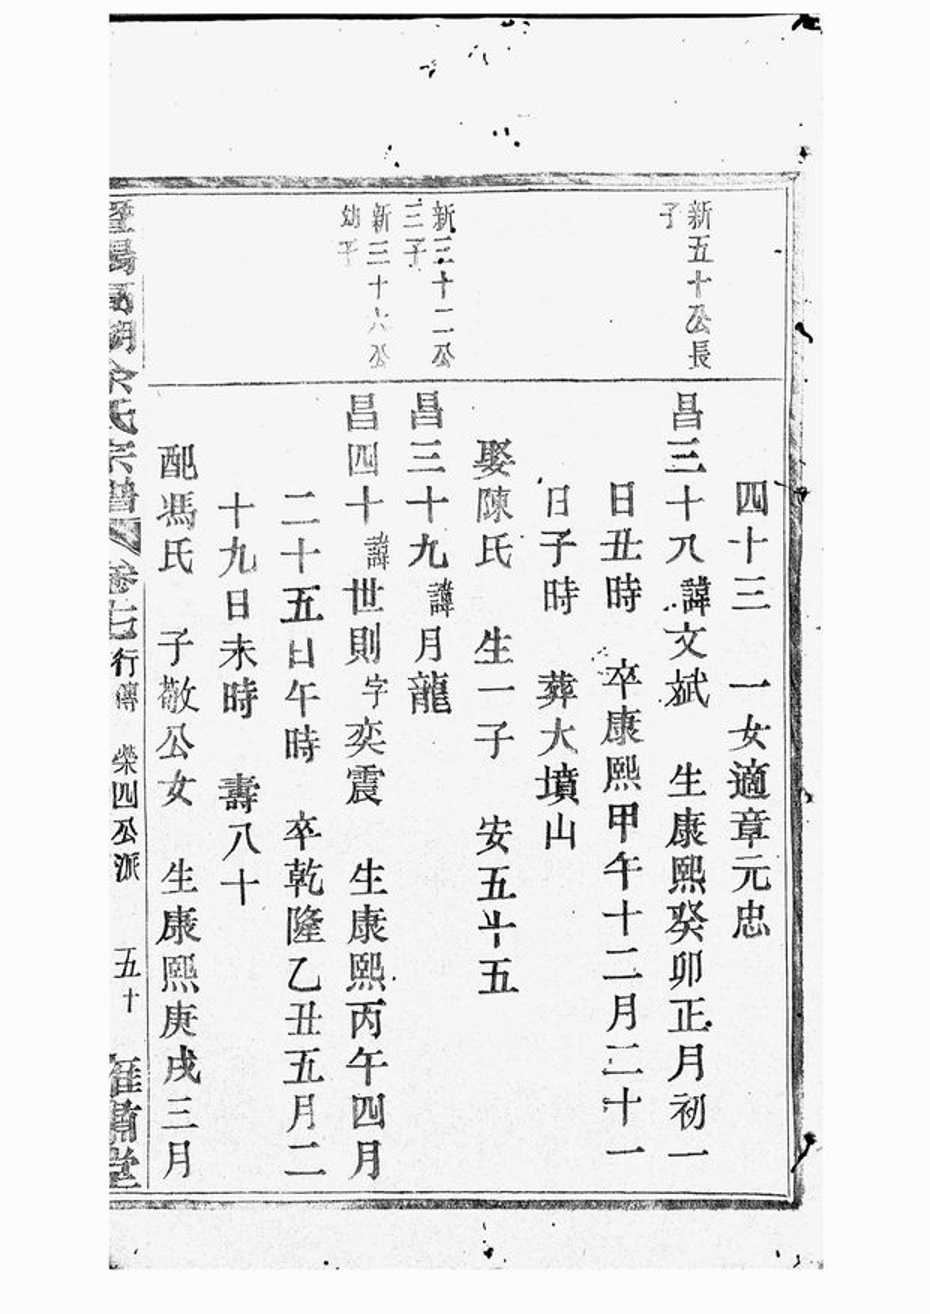 新五十公長
子
新三十二公
三子
新三十六公
幼子
四十三　一女適章元忠
昌三十八諱文斌　生康熙癸卯正月初一
日丑時　卒康熙甲午十二月二十一
日子時　葬大墳山
娶陳氏　生一子　安五十五
昌三十九諱月龍
昌四十諱世則字奕震　生康熙丙午四月
二十五日午時　卒乾隆乙丑五月二
十九日未時　壽八十
配馮氏　子敬公女　生康熙庚戌三月
暨陽高湖余氏宗譜　卷七　行傳　榮四公派　五十　堂